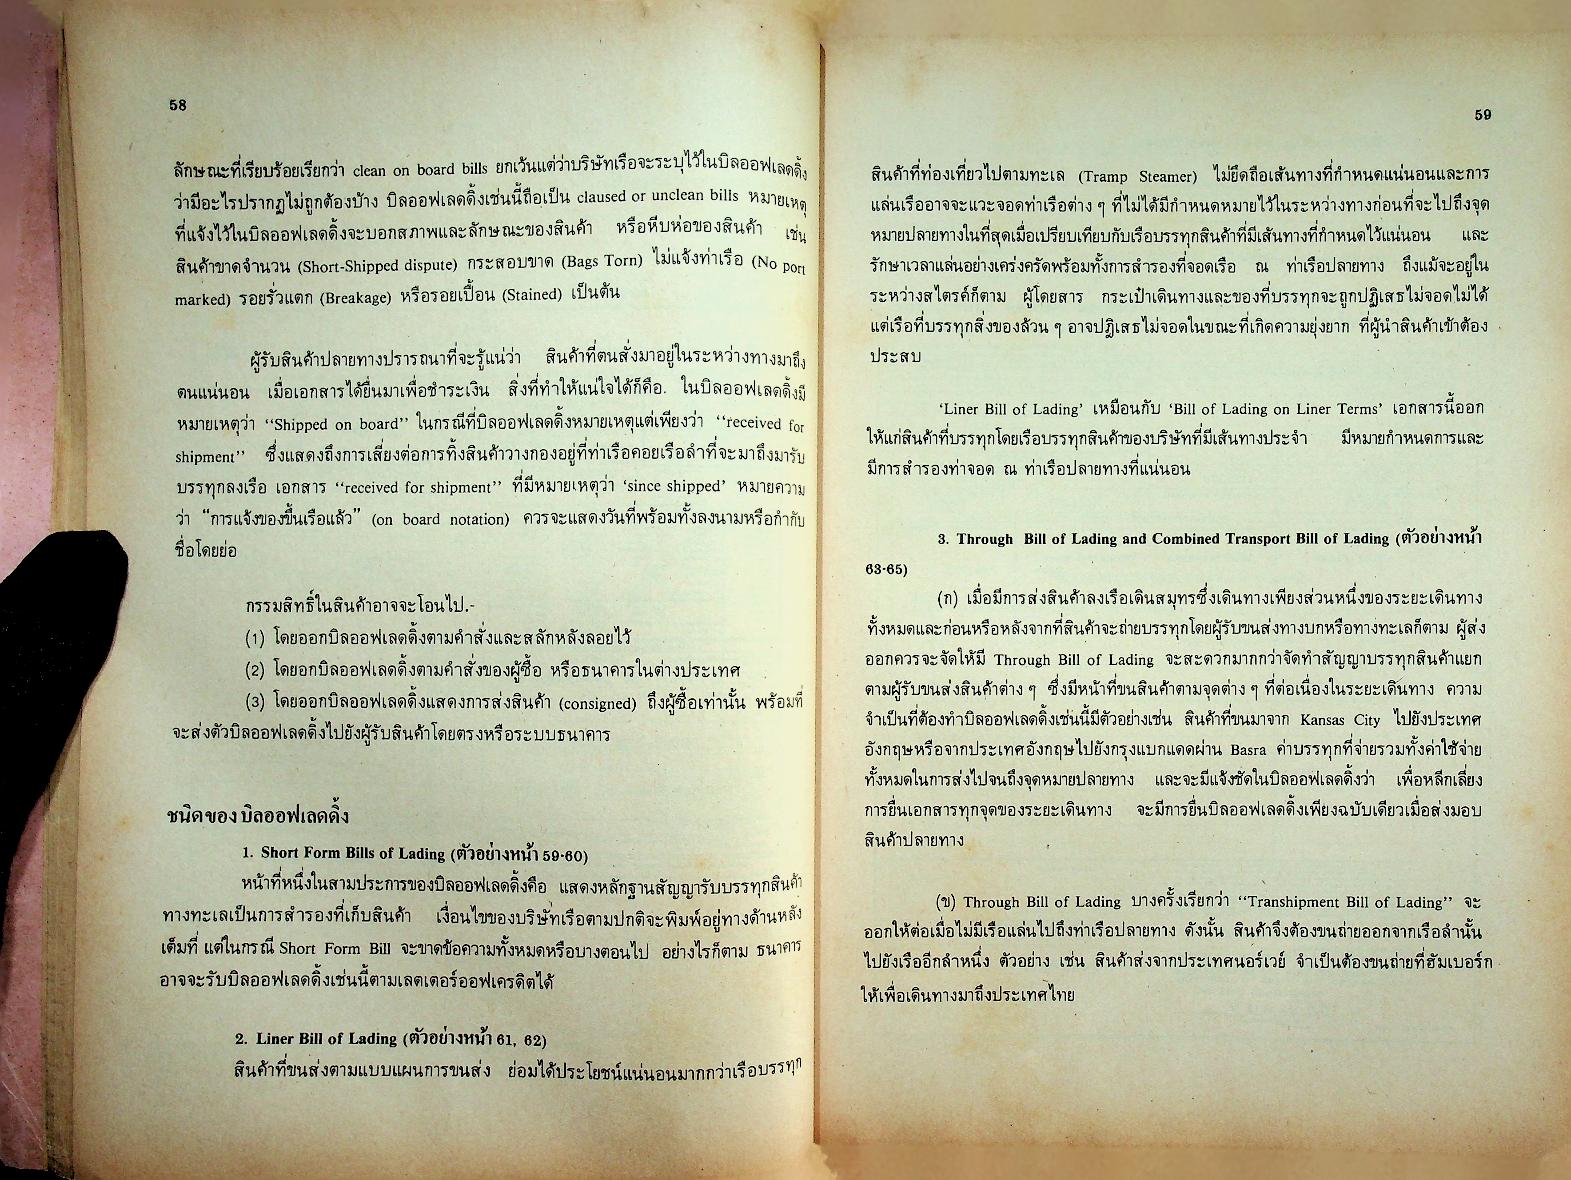 58
ลักษณะที่เรียบร้อยเรียกว่า clean on board bills ยกเว้นแต่ว่าบริษัทเรือจะระบุไว้ในบิลออฟเลดดิ้ง
ว่ามีอะไรปรากฏไม่ถูกต้องบ้าง บิลออฟเลดดิ้งเช่นนี้ถือเป็น claused or unclean bills หมายเหตุ
ที่แจ้งไว้ในบิลออฟเลดดิ้งจะบอกสภาพและลักษณะของสินค้า หรือหีบห่อของสินค้า เช่น
สินค้าขาดจำนวน (Short-Shipped dispute) กระสอบขาด (Bags Torn) ไม่แจ้งท่าเรือ (No port
marked) รอยรั่วแตก (Breakage) หรือรอยเปื้อน (Stained) เป็นต้น
ผู้รับสินค้าปลายทางปรารถนาที่จะรู้แน่ว่า สินค้าที่ตนสั่งมาอยู่ในระหว่างทางมาถึง
ตนแน่นอน เมื่อเอกสารได้ยื่นมาเพื่อชำระเงิน สิ่งที่ทำให้แน่ใจได้ก็คือ. ในบิลออฟเลดดิ้งมี
หมายเหตุว่า "Shipped on board" ในกรณีที่บิลออฟเลดดิ้งหมายเหตุแต่เพียงว่า "received for
shipment" ซึ่งแสดงถึงการเสี่ยงต่อการทิ้งสินค้าวางกองอยู่ที่ท่าเรือคอยเรือลำที่จะมาถึงมารับ
บรรทุกลงเรือ เอกสาร "received for shipment" ที่มีหมายเหตุว่า 'since shipped' หมายความ
ว่า "การแจ้งของขึ้นเรือแล้ว" (on board notation) ควรจะแสดงวันที่พร้อมทั้งลงนามหรือกำกับ
ชื่อโดยย่อ
กรรมสิทธิ์ในสินค้าอาจจะโอนไป.-
(1) โดยออกบิลออฟเลดดิ้งตามคำสั่งและสลักหลังลอยไว้
(2) โดยอกบิลออฟเลดดิ้งตามคำสั่งของผู้ซื้อ หรือธนาคารในต่างประเทศ
(3) โดยออกบิลออฟเลดดิ้งแสดงการส่งสินค้า (consigned) ถึงผู้ซื้อเท่านั้น พร้อมที่
จะส่งตัวบิลออฟเลดดิ้งไปยังผู้รับสินค้าโดยตรงหรือระบบธนาคาร
ชนิดของบิลออฟเลดดิ้ง
1. Short Form Bills of Lading (ตัวอย่างหน้า 59-60)
หน้าที่หนึ่งในสามประการของบิลออฟเลดดิ้งคือ แสดงหลักฐานสัญญารับบรรทุกสินค้า
ทางทะเลเป็นการสำรองที่เก็บสินค้า เงื่อนไขของบริษัทเรือตามปกติจะพิมพ์อยู่ทางด้านหลัง
เต็มที่ แต่ในกรณี Short Form Bill จะขาดข้อความทั้งหมดหรือบางตอนไป อย่างไรก็ตาม ธนาคาร
อาจจะรับบิลออฟเลดดิ้งเช่นนี้ตามเลตเตอร์ออฟเครดิตได้
2. Liner Bill of Lading (ตัวอย่างหน้า 61, 62)
สินค้าที่ขนส่งตามแบบแผนการขนส่ง ย่อมได้ประโยชน์แน่นอนมากกว่าเรือบรรทุก
59
สินค้าที่ท่องเที่ยวไปตามทะเล (Tramp Steamer) ไม่ยึดถือเส้นทางที่กำหนดแน่นอนและการ
แล่นเรืออาจจะแวะจอดท่าเรือต่าง ๆ ที่ไม่ได้มีกำหนดหมายไว้ในระหว่างทางก่อนที่จะไปถึงจุด
หมายปลายทางในที่สุดเมื่อเปรียบเทียบกับเรือบรรทุกสินค้าที่มีเส้นทางที่กำหนดไว้แน่นอน และ
รักษาเวลาแล่นอย่างเคร่งครัดพร้อมทั้งการสำรองที่จอดเรือ ณ ท่าเรือปลายทาง ถึงแม้จะอยู่ใน
ระหว่างสไตรค์ก็ตาม ผู้โดยสาร กระเป๋าเดินทางและของที่บรรทุกจะถูกปฏิเสธไม่จอดไม่ได้
แต่เรือที่บรรทุกสิ่งของล้วน ๆ อาจปฏิเสธไม่จอดในขณะที่เกิดความยุ่งยาก ที่ผู้นำสินค้าเข้าต้อง
ประสบ
'Liner Bill of Lading' เหมือนกับ 'Bill of Lading on Liner Terms' เอกสารนี้ออก
ให้แก่สินค้าที่บรรทุกโดยเรือบรรทุกสินค้าของบริษัทที่มีเส้นทางประจำ มีหมายกำหนดการและ
มีการสำรองท่าจอด ณ ท่าเรือปลายทางที่แน่นอน
3. Through Bill of Lading and Combined Transport Bill of Lading (ตัวอย่างหน้า
63-65)
(ก) เมื่อมีการส่งสินค้าลงเรือเดินสมุทรซึ่งเดินทางเพียงส่วนหนึ่งของระยะเดินทาง
ทั้งหมดและก่อนหรือหลังจากที่สินค้าจะถ่ายบรรทุกโดยผู้รับขนส่งทางบกหรือทางทะเลก็ตาม ผู้ส่ง
ออกควรจะจัดให้มี Through Bill of Lading จะสะดวกมากกว่าจัดทำสัญญาบรรทุกสินค้าแยก
ตามผู้รับขนส่งสินค้าต่าง ๆ ซึ่งมีหน้าที่ขนสินค้าตามจุดต่าง ๆ ที่ต่อเนื่องในระยะเดินทาง ความ
จำเป็นที่ต้องทำบิลออฟเลดดิ้งเช่นนี้มีตัวอย่างเช่น สินค้าที่ขนมาจาก Kansas City ไปยังประเทศ
อังกฤษหรือจากประเทศอังกฤษไปยังกรุงแบกแดดผ่าน Basra ค่าบรรทุกที่จ่ายรวมทั้งค่าใช้จ่าย
ทั้งหมดในการส่งไปจนถึงจุดหมายปลายทาง และจะมีแจ้งชัดในบิลออฟเลดดิ้งว่า เพื่อหลีกเลี่ยง
การยื่นเอกสารทุกจุดของระยะเดินทาง จะมีการยื่นบิลออฟเลดดิ้งเพียงฉบับเดียวเมื่อส่งมอบ
สินค้าปลายทาง
(ข) Through Bill of Lading บางครั้งเรียกว่า "Transhipment Bill of Lading" จะ
ออกให้ต่อเมื่อไม่มีเรือแล่นไปถึงท่าเรือปลายทาง ดังนั้น สินค้าจึงต้องขนถ่ายออกจากเรือลำนั้น
ไปยังเรืออีกลำหนึ่ง ตัวอย่าง เช่น สินค้าส่งจากประเทศนอร์เวย์ จำเป็นต้องขนถ่ายที่ฮัมเบอร์ก
ให้เพื่อเดินทางมาถึงประเทศไทย